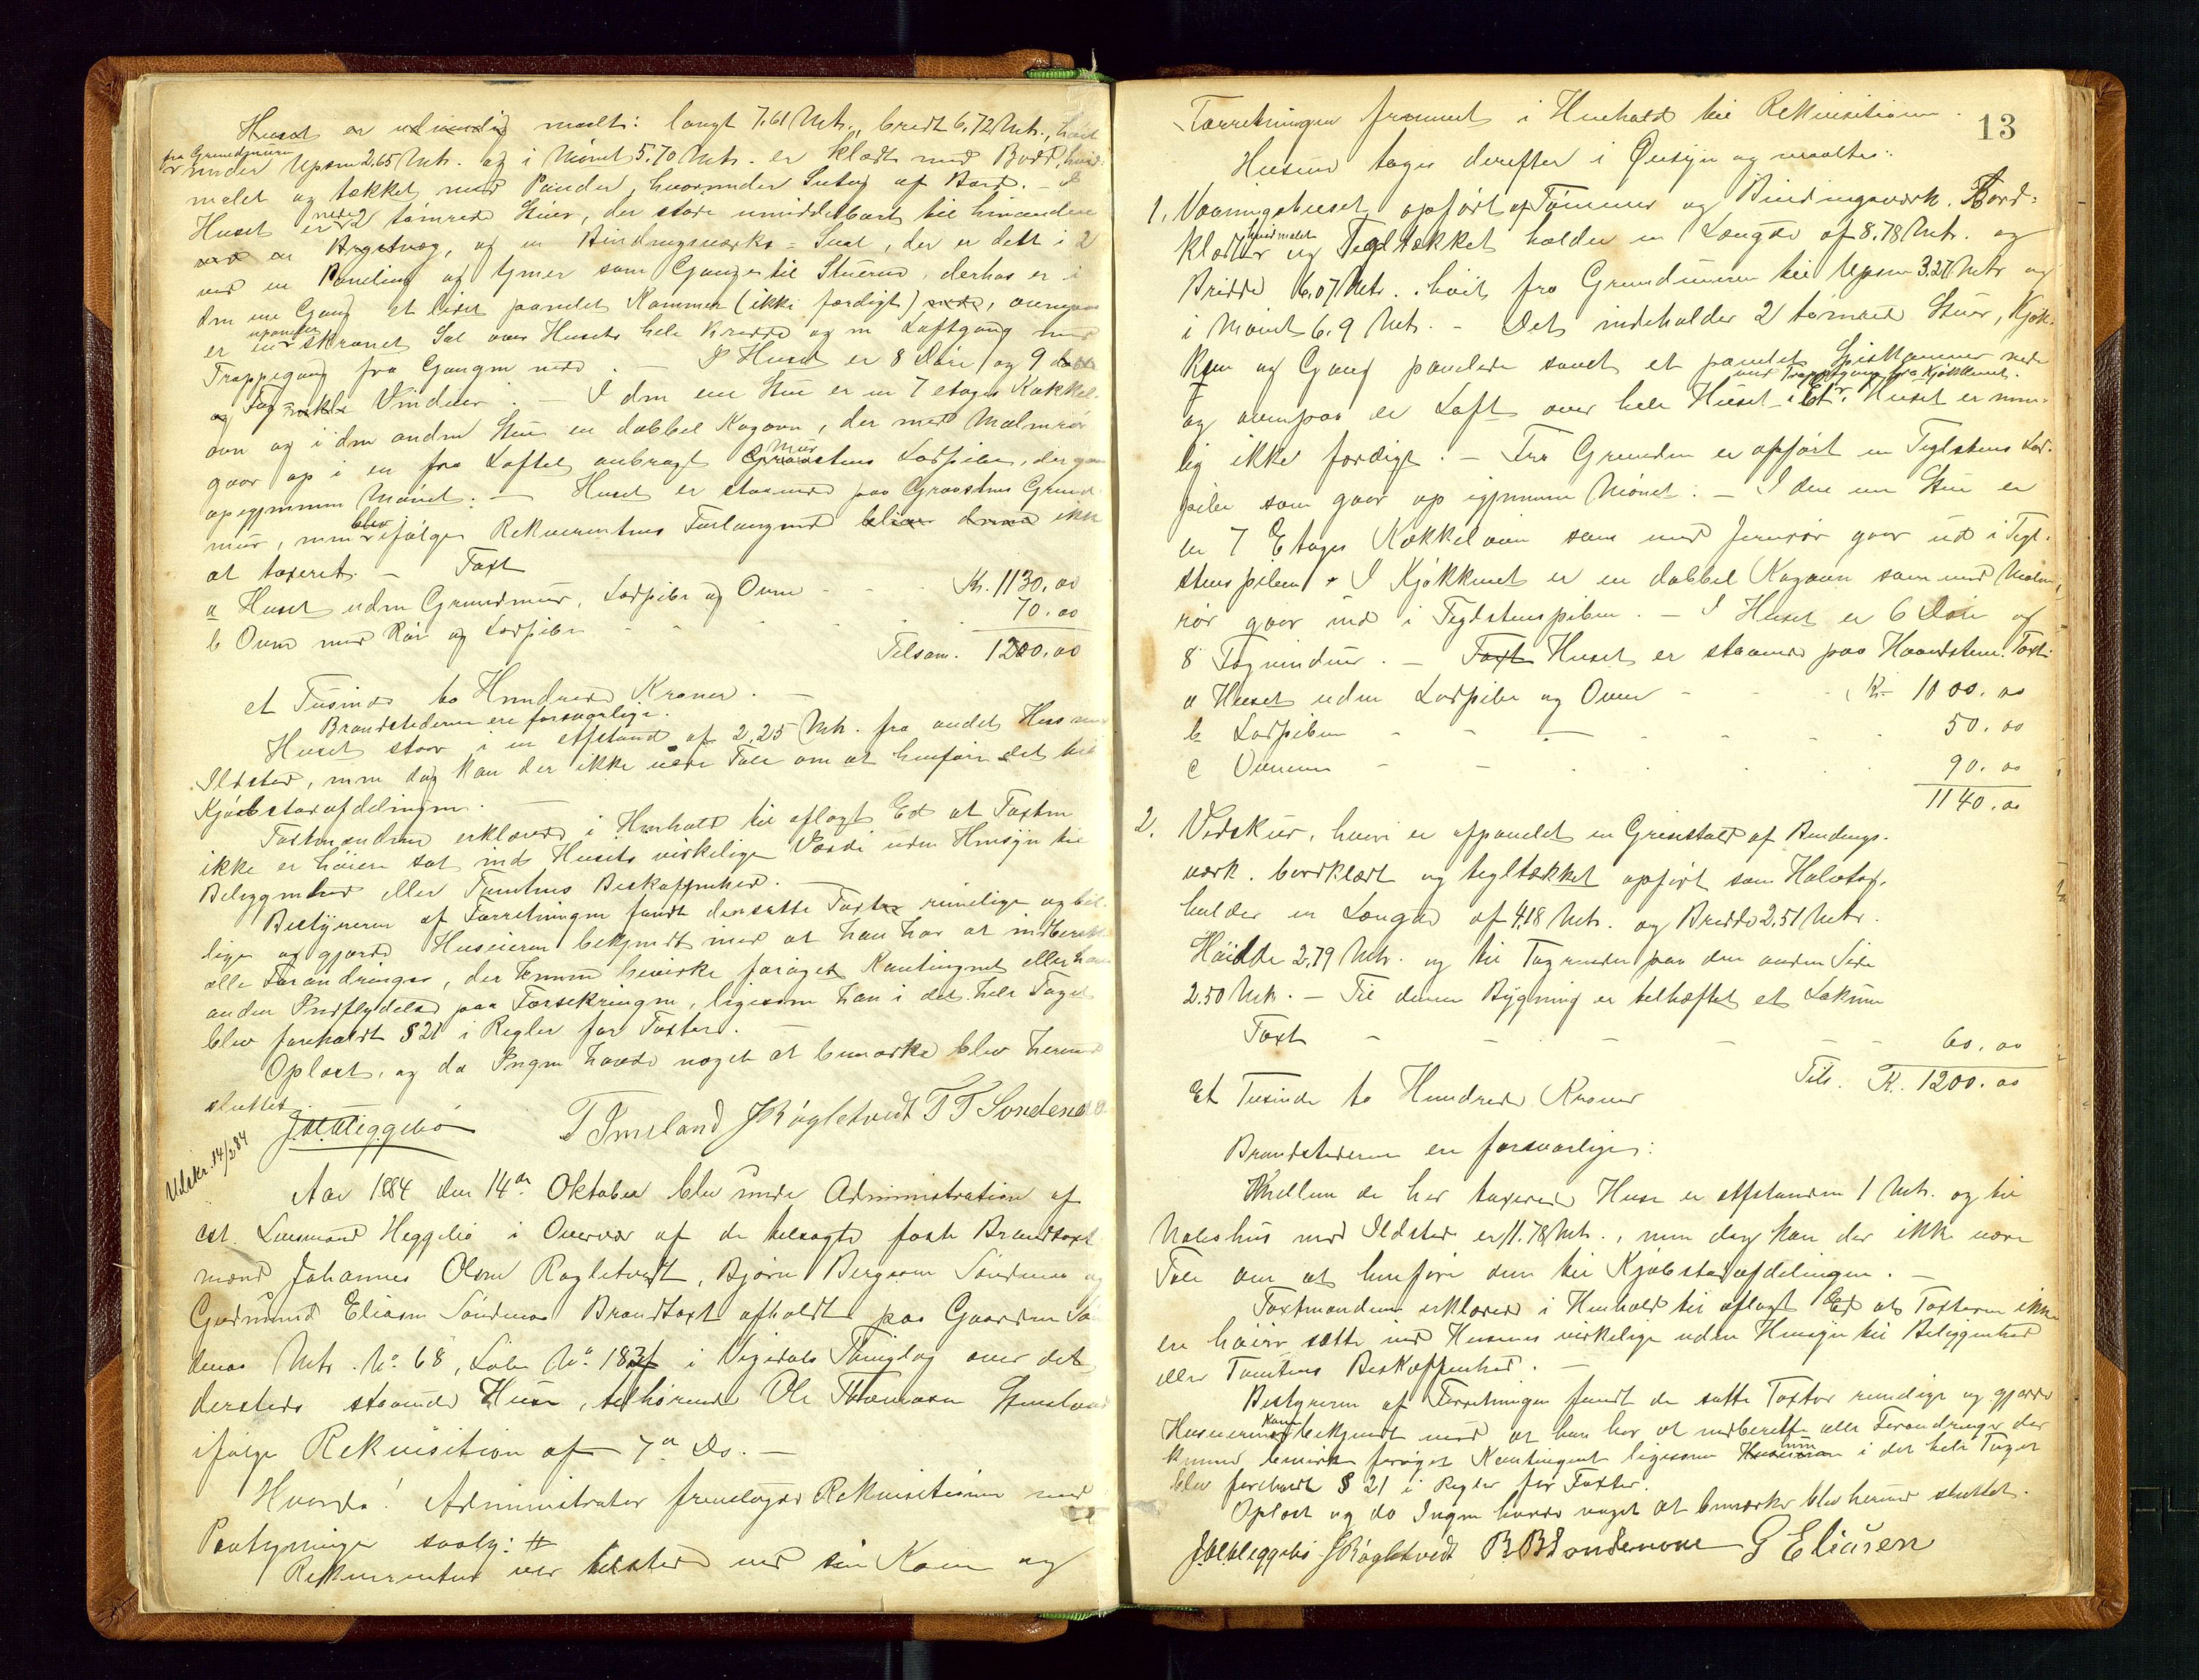 Huset er udvendig maalt: langt 7.61 Mtr., bredt 6.72 Mtr., høit
fra Grundmuren
under Upsen 2.65 Mtr. og i Mønet 5.70 Mtr. er klædt med Bord, hvid-
malet og tækket med Pander, hvorunder Sutag af Bord. – I
Huset er nede 2 tømrede Stuer, der støde umiddelbart til hinanden
en Bygetvæg, og en Bindingsværks-Sval, der er delt i 2
ved en Paneling og tjener som Gange til Stuerne, derhos er i
den ene Gang et lidet panelet Kammer (ikke færdigt), ovenpaa
er en upanelet skraaet Sal over Husets hele Bredde og en Loftgang med
Trappegang fra Gangen nede. – I Huset er 8 Døre og 9
og Fag Vinduer. – I den ene Stue er en 7 etages Kakkel-
ovn og i den anden Stue en dobbel Kogovn, der med Malmrør
gaar op i en fra Loftet anbragt Mursten Lodpibe, der gaar
op igjennem Mønet. – Huset er staaende paa Graasten Grund-
mur, men blev ifølge Rekvirentens Forlangende ikke
at taxeret. – Taxt
a Huset uden Grundmur, Lodpibe og Ovne - - Kr. 1130.00
b Ovne med Rør og Lodpibe - - - 70.00
Tilsam. 1200.00
et Tusinde to Hundrede Kroner. –
Brandstederne ere forsvarlige.
Huset staar i en Afstand af 2.25 Mtr. fra andet Hus med
Ildsted, men dog kan der ikke være Tale om at henføre det til
Kjøbstadafdelingen. –
Taxtmændene erklærede i Henhold til aflagt Ed at Taxten
ikke er høiere sat ind Husets virkelige Værdi uden Hensyn til
Beliggenhed eller Tomtens Beskaffenhed. –
Bestyreren af Forretningen fandt den satte Taxt rimelige og bil-
lige og gjorde Huseieren bekjendt med at han har at indberette
alle Forandringer, der kunne bevirke forøget Kontingent eller have
anden Indflydelse paa Forsikringen, ligesom han i det hele Taget
blev foreholdt § 21 i Regler for Taxter.
Oplæst, og da Ingen havde noget at bemærke blev hermed
sluttet.
J.M.Heggebø T Imsland JRøgletvedt T T Søndenaa
Udskr. 14/2 84
Aar 1884 den 14de Oktober blev under Administration af
cst. Lensmand Heggebø i Overvær af de tilsagte faste Brandtaxt-
mænd Johannes Olsen Røgletvedt, Bjørn Bergesen Søndenaa og
Gudmund Eliasen Søndenaa Brandtaxt afholdt paa Gaarden Søn-
denaa Mtr. No. 68, Løbe No. 183 i Vigedals Thinglag over det
dersteds staaende Huse, tilhørende Ole Thomasen Imsland
ifølge Rekvisition af 7de Ds. –
Hvorda! Administrator fremlagde Rekvisitionen med
Paategninger saalyd: #
Rekvirenten var tilstede ved sin Kone og
13
Forretningen fremmet i Henhold til Rekvisitionen.
Husene toges derefter i Øiesyn og maaltes:
1. Vaaningshuset opført af Tømmer og Bindingsværk. Bord-
klædt hvidmalet og Tegltækket holder en Længde af 8.78 Mtr. og
Bredde 6.07 Mtr., høit fra Grundmuren til Upsen 3.27 Mtr og
i Mønet 6.9 Mtr. – Det indeholder 2 tømrede Stuer, Kjøk-
ken og Gang panelede samt et panelet Spiskammer nede
med Trappegang fra Kjøkkenet.
og ovenpaa er Loft over hele Huset i Et. Huset er nem-
lig ikke færdigt. – Fra Grunden er opført en Teglstens Lod-
pibe som gaar op igjennem Mønet. – I den ene Stue er
en 7 Etages Kakkelovn som med Jernrør gaar ud i Tegl-
stenspiben. I Kjøkkenet er en dobbel Kogovn som med Malm-
rør gaar ind i Teglstenspiben. – I Huset er 6 Døre og
8 Fagvinduer. – Taxt Huset er staaende paa Haandsten. Taxt.
a Huset uden Lodpibe og Ovne - - Kr 1000.00
b Lodpiben - - - - 50.00
c Ovnene - - - - 90.00
1140.00
2. Vedskur, hvori er afpanelet en Grisestald af Bindings-
værk, bordklædt og tegltækket opført som Halvtag,
holder en Længde af 4.18 Mtr. og Bredde 2.51 Mtr.
Høidde 2.79 Mtr. og til Tagrenden paa den anden Side
2.50 Mtr. – Til denne Bygning er tilhæftet et Lokum
Taxt - - - - 60.00
Et Tusinde to Hundrede Kroner Tils. K. 1200.00
Brandstederne ere forsvarlige:
Mellem de her taxerede Huse er Afstanden 1 Mtr. og til
Nabohus med Ildsted er 11.78 Mtr., men dog kan der ikke være
Tale om at henføre dem til Kjøbstadafdelingen. –
Taxtmændene erklærede i Henhold til aflagt Ed at Taxterne ikke
ere høiere satte ind Husenes virkelige uden Hensyn til Beliggenhed
eller Tomtens Beskaffenhed. –
Bestyreren af Forretningen fandt de satte Taxter rimelige og gjorde
Huseierens Kone bekjendt med at han har at indberette alle Forandringer der
kunne bevirke forøget Kontingent ligesom hun i det hele Taget
blev foreholdt § 21 i Regler for Taxter.
Oplæst og da Ingen havde noget at bemærke blev hermed sluttet.
J.M.Heggebø JRøgletvedt B B Søndenaae G Eliasen